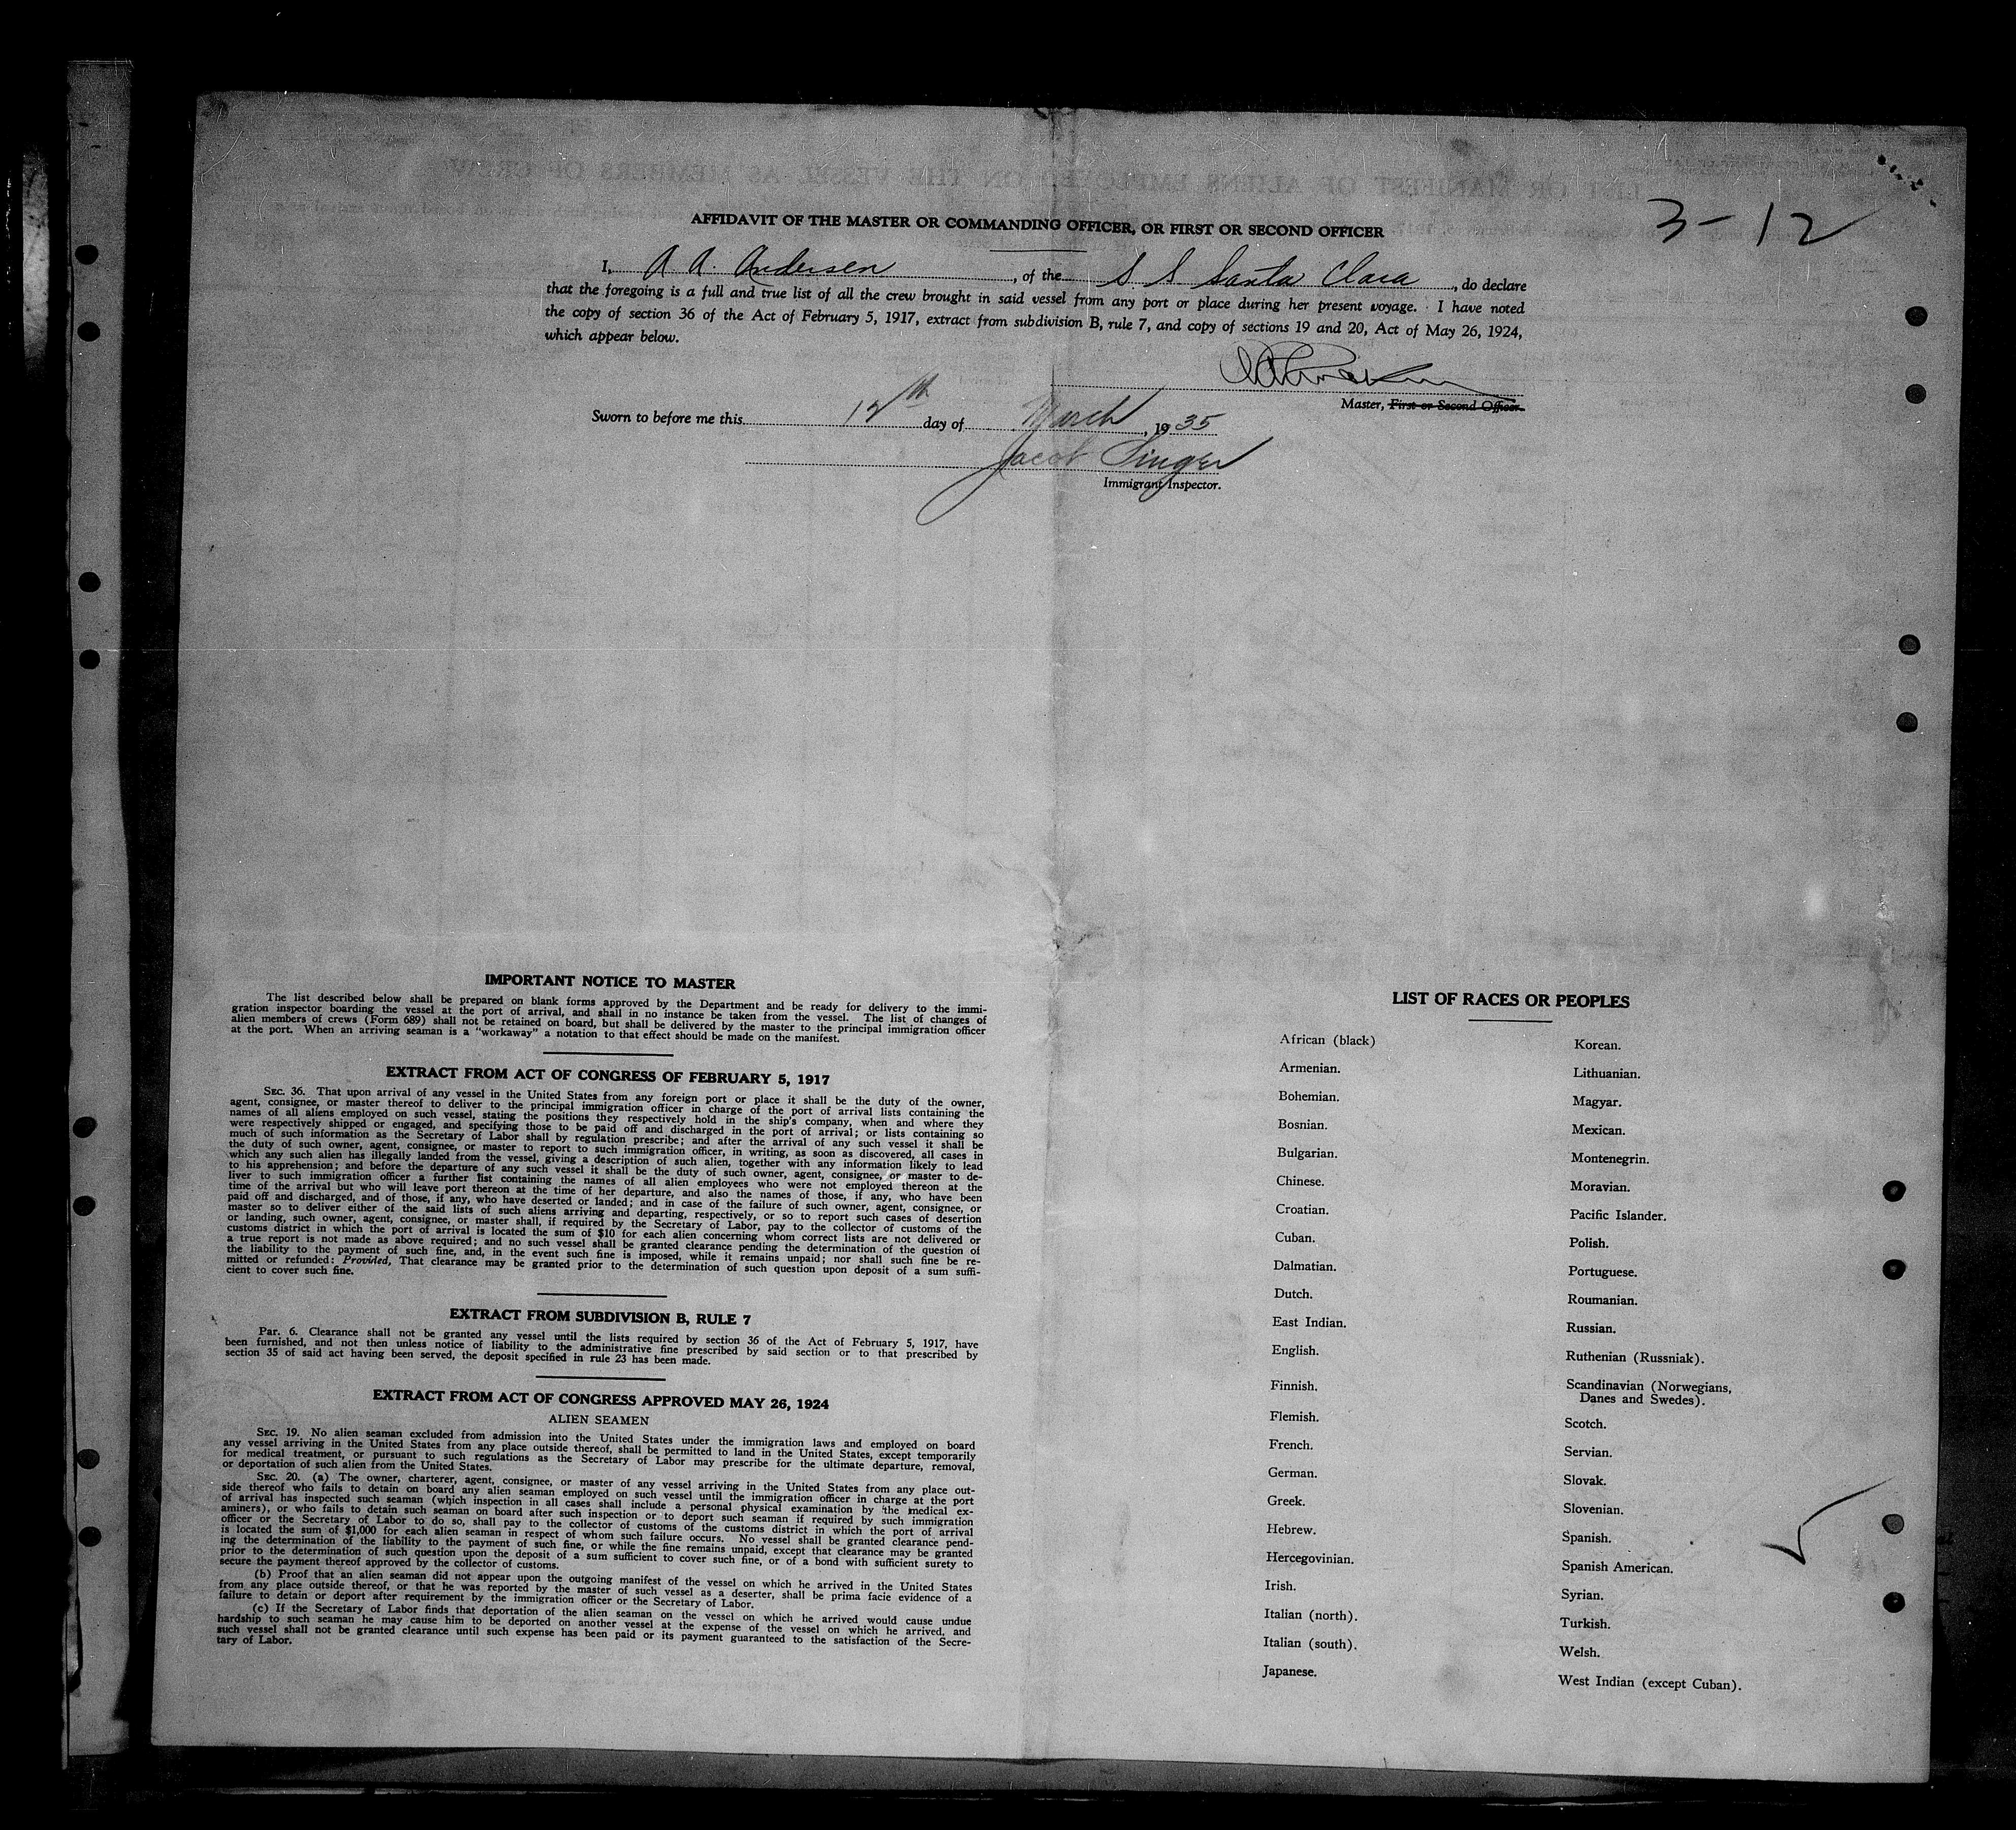 3-12
AFFIDAVIT OF THE MASTER OR COMMANDING OFFICER, OR FIRST OR SECOND OFFICER
I, A A. Andersen, of the S S Santa Clara, do declare
that the foregoing is a full and true list of all the crew brought in said vessel from any port or place during her present voyage. I have noted
the copy of section 36 of the Act of February 5, 1917, extract from subdivision B, rule 7, and copy of sections 19 and 20, Act of May 26, 1924,
which appear below.
Master, First or Second Officer.
Sworn to before me this 12th day of March, 1935
Jacob Singer
Immigrant Inspector.
IMPORTANT NOTICE TO MASTER
The list described below shall be prepared on blank forms approved by the Department and be ready for delivery to the immi-
gration inspector boarding the vessel at the port of arrival, and shall in no instance be taken from the vessel. The list of changes of
alien members of crews (Form 689) shall not be retained on board, but shall be delivered by the master to the principal immigration officer
at the port. When an arriving seaman is a "workaway" a notation to that effect should be made on the manifest.
EXTRACT FROM ACT OF CONGRESS OF FEBRUARY 5, 1917
SEC. 36. That upon arrival of any vessel in the United States from any foreign port or place it shall be the duty of the owner,
agent, consignee, or master thereof to deliver to the principal immigration officer in charge of the port of arrival lists containing the
names of all aliens employed on such vessel, stating the positions they respectively hold in the ship's company, when and where they
were respectively shipped or engaged, and specifying those to be paid off and discharged in the port of arrival; or lists containing so
much of such information as the Secretary of Labor shall by regulation prescribe; and after the arrival of any such vessel it shall be
the duty of such owner, agent, consignee, or master to report to such immigration officer, in writing, as soon as discovered, all cases in
which any such alien has illegally landed from the vessel, giving a description of such alien, together with any information likely to lead
to his apprehension; and before the departure of any such vessel it shall be the duty of such owner, agent, consignee, or master to de-
liver to such immigration officer a further list containing the names of all alien employees who were not employed thereon at the
time of the arrival but who will leave port thereon at the time of her departure, and also the names of those, if any, who have been
paid off and discharged, and of those, if any, who have deserted or landed; and in case of the failure of such owner, agent, consignee, or
master so to deliver either of the said lists of such aliens arriving and departing, respectively, or so to report such cases of desertion
or landing, such owner, agent, consignee, or master shall, if required by the Secretary of Labor, pay to the collector of customs of the
customs district in which the port of arrival is located the sum of $10 for each alien concerning whom correct lists are not delivered or
a true report is not made as above required; and no such vessel shall be granted clearance pending the determination of the question of
the liability to the payment of such fine, and, in the event such fine is imposed, while it remains unpaid; nor shall such fine be re-
mitted or refunded: Provided, That clearance may be granted prior to the determination of such question upon deposit of a sum suffi-
cient to cover such fine.
EXTRACT FROM SUBDIVISION B, RULE 7
Par. 6. Clearance shall not be granted any vessel until the lists required by section 36 of the Act of February 5, 1917, have
been furnished, and not then unless notice of liability to the administrative fine prescribed by said section or to that prescribed by
section 35 of said act having been served, the deposit specified in rule 23 has been made.
EXTRACT FROM ACT OF CONGRESS APPROVED MAY 26, 1924
ALIEN SEAMEN
SEC. 19. No alien seaman excluded from admission into the United States under the immigration laws and employed on board
any vessel arriving in the United States from any place outside thereof, shall be permitted to land in the United States, except temporarily
for medical treatment, or pursuant to such regulations as the Secretary of Labor may prescribe for the ultimate departure, removal,
or deportation of such alien from the United States.
SEC. 20. (a) The owner, charterer, agent, consignee, or master of any vessel arriving in the United States from any place out-
side thereof who fails to detain on board any alien seaman employed on such vessel until the immigration officer in charge at the port
of arrival has inspected such seaman (which inspection in all cases shall include a personal physical examination by the medical ex-
aminers), or who fails to detain such seaman on board after such inspection or to deport such seaman if required by such immigration
officer or the Secretary of Labor to do so, shall pay to the collector of customs of the customs district in which the port of arrival
is located the sum of $1,000 for each alien seaman in respect of whom such failure occurs. No vessel shall be granted clearance pend-
ing the determination of the liability to the payment of such fine, or while the fine remains unpaid, except that clearance may be granted
prior to the determination of such question upon the deposit of a sum sufficient to cover such fine, or of a bond with sufficient surety to
secure the payment thereof approved by the collector of customs.
(b) Proof that an alien seaman did not appear upon the outgoing manifest of the vessel on which he arrived in the United States
from any place outside thereof, or that he was reported by the master of such vessel as a deserter, shall be prima facie evidence of a
failure to detain or deport after requirement by the immigration officer or the Secretary of Labor.
(c) If the Secretary of Labor finds that deportation of the alien seaman on the vessel on which he arrived would cause undue
hardship to such seaman he may cause him to be deported on another vessel at the expense of the vessel on which he arrived, and
such vessel shall not be granted clearance until such expense has been paid or its payment guaranteed to the satisfaction of the Secre-
tary of Labor.
LIST OF RACES OR PEOPLES
African (black)
Armenian.
Bohemian.
Bosnian.
Bulgarian.
Chinese.
Croatian.
Cuban.
Dalmatian.
Dutch.
East Indian.
English.
Finnish.
Flemish.
French.
German.
Greek.
Hebrew.
Hercegovinian.
Irish.
Italian (north).
Italian (south).
Japanese.
Korean.
Lithuanian.
Magyar.
Mexican.
Montenegrin.
Moravian.
Pacific Islander.
Polish.
Portuguese.
Roumanian.
Russian.
Ruthenian (Russniak).
Scandinavian (Norwegians,
Danes and Swedes).
Scotch.
Servian.
Slovak.
Slovenian.
Spanish.
Spanish American.
Syrian.
Turkish.
Welsh.
West Indian (except Cuban).